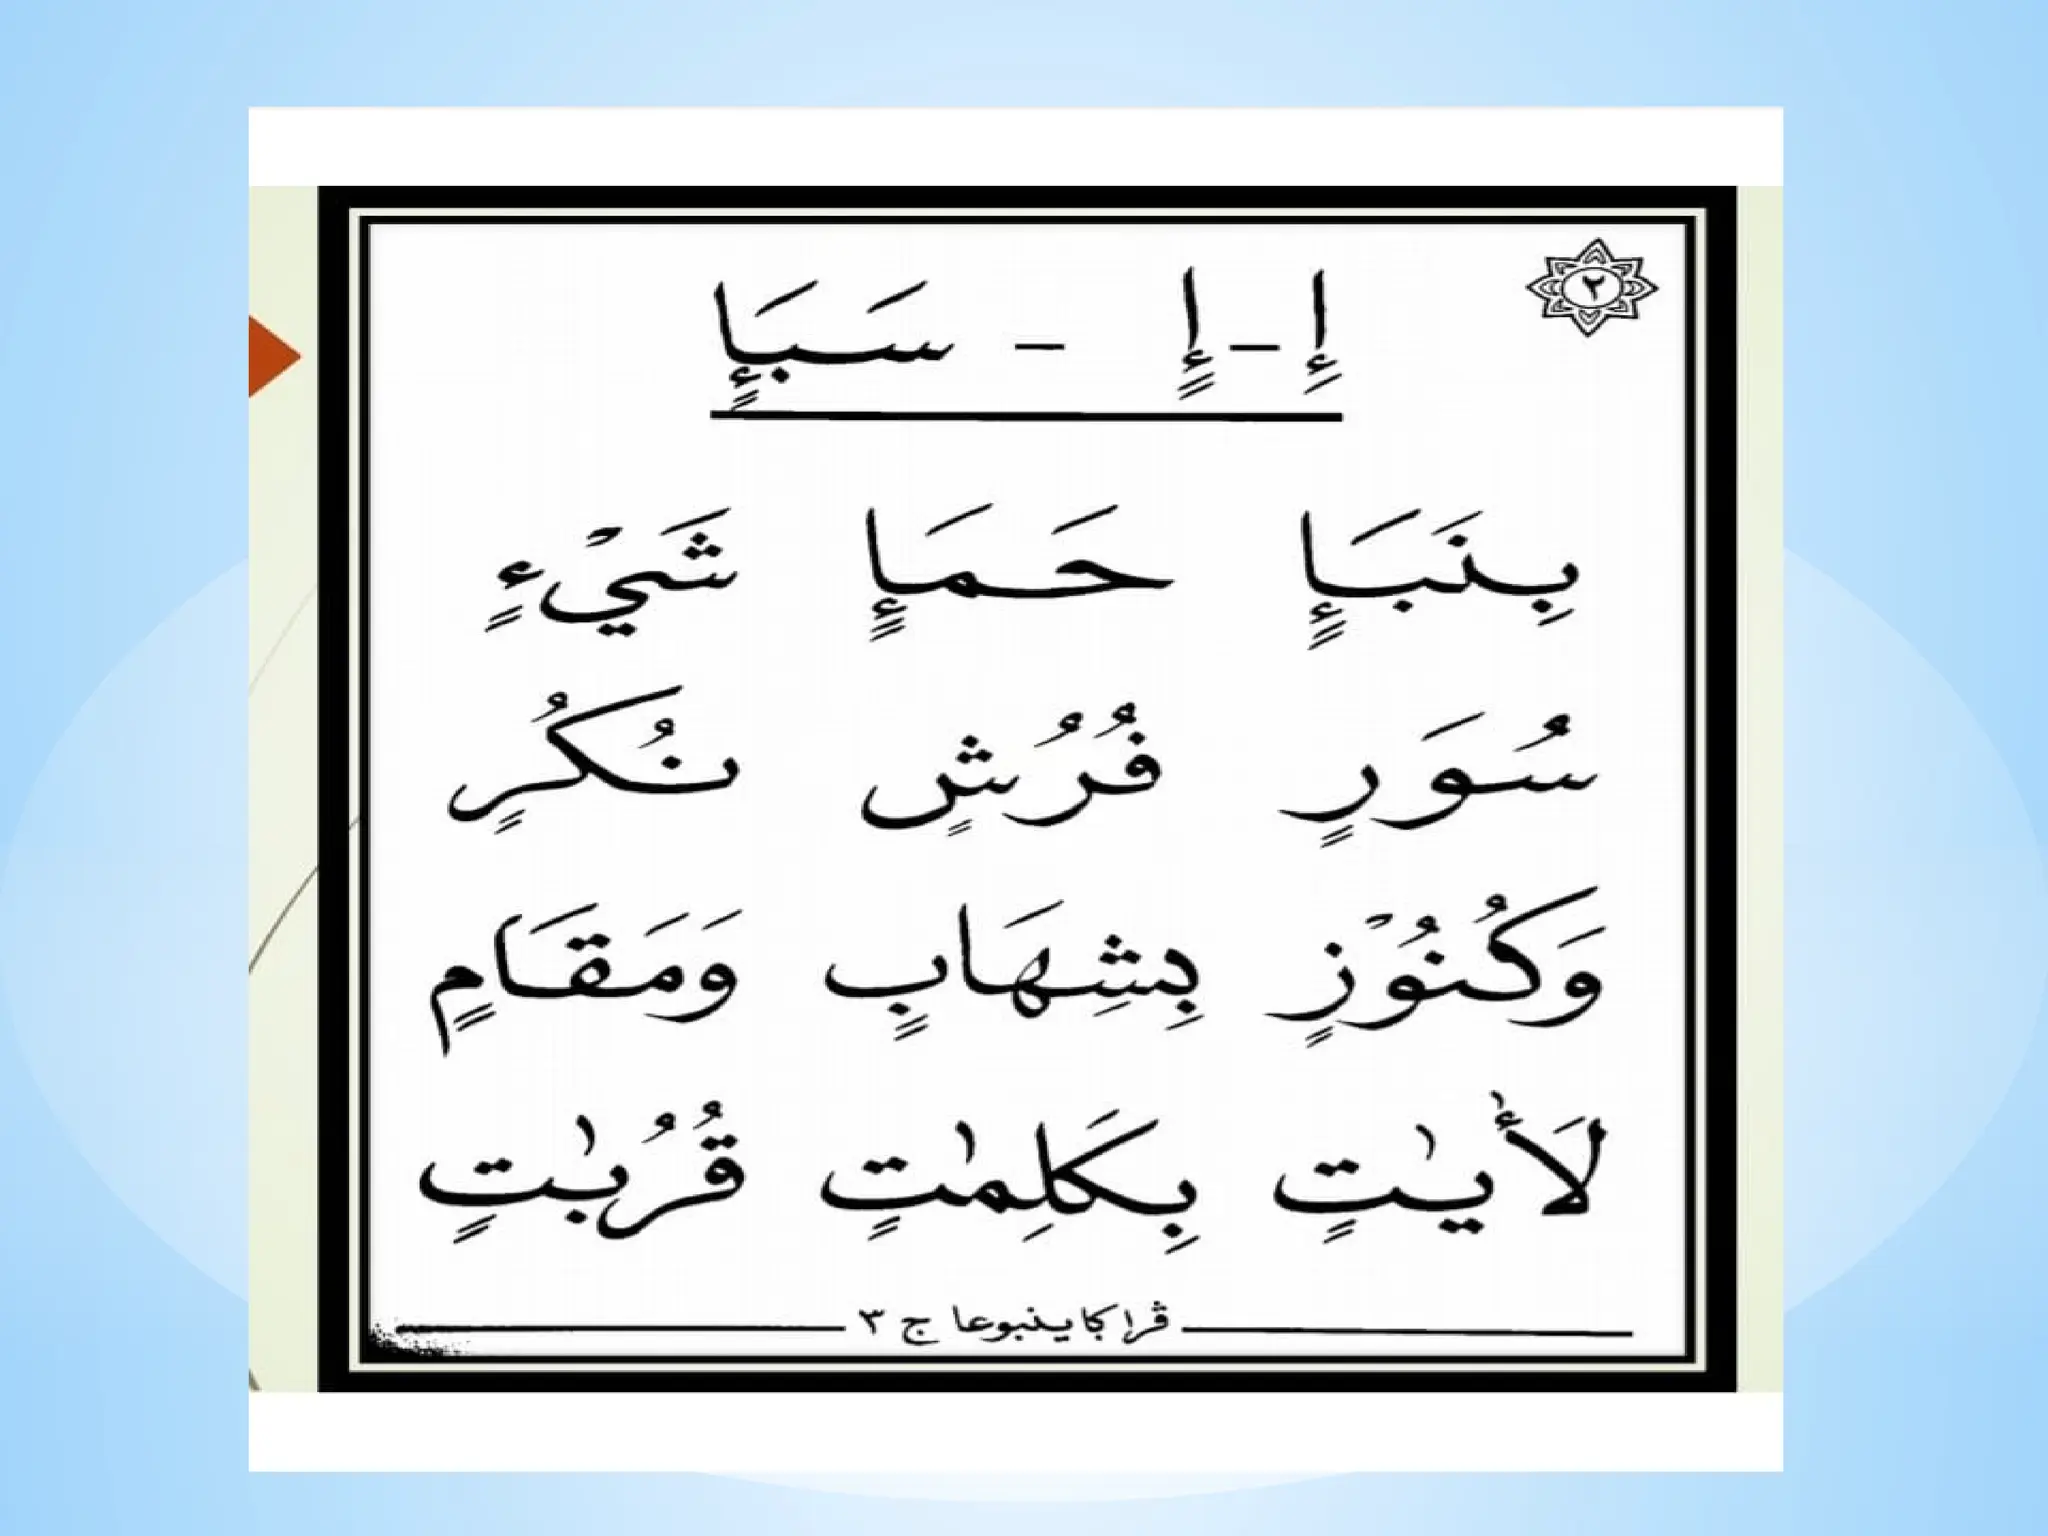 ٢
إِ - إٍ - سَبَإٍ
بِنَبَإٍ حَمَإٍ شَيْءٍ
سُوَرٍ فُرُشٍ نُكُرٍ
وَكُنُوْزٍ بِشِهَابٍ وَمَقَامٍ
لَأٰيٰتٍ بِكَلِمٰتٍ قُرُبٰتٍ
قراكاينبوعا ج ٣